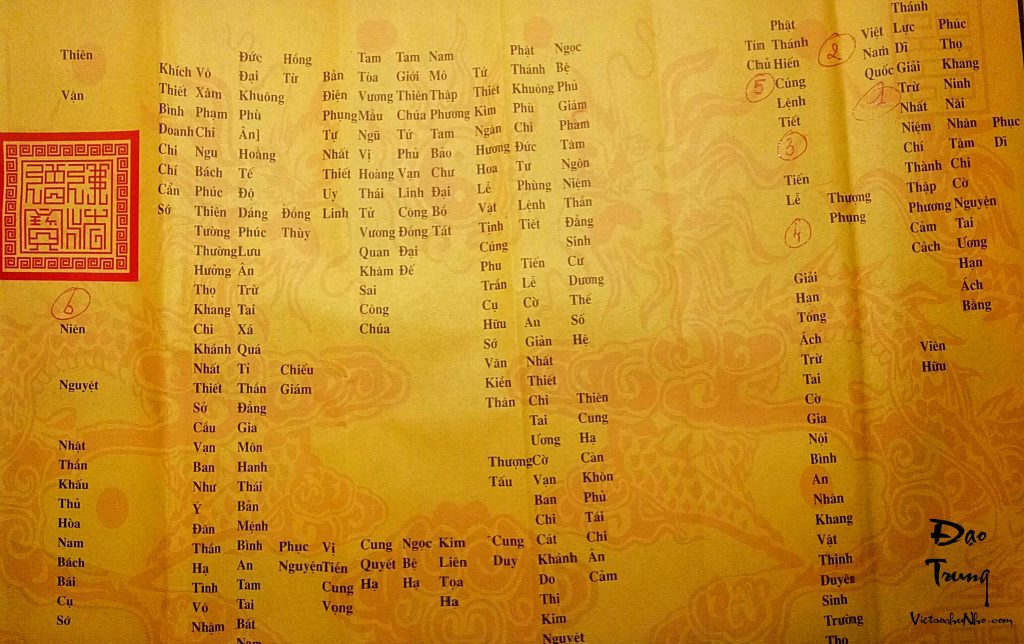 Phục Dĩ
Phúc Thọ Khang Ninh Nãi Nhân Tâm Chi Cờ Nguyện Tai Ương Hạn Ách Bằng
Thánh Lực Dĩ Giải Trừ Nhất Niệm Chí Thành Thập Phương Cảm Cách Viên Hữu
1
Việt Nam Quốc
2
Thượng Phụng
Phật Thánh Hiến Cúng Lệnh Tiết
3
Tiến Lễ
4
Giải Hạn Tống Ách Trừ Tai Cờ Gia Nội Bình An Nhân Khang Vật Thịnh Duyên Sinh Trường Thọ
Tín Chủ
5
Ngọc Bệ Phủ Giám Phàm Tâm Ngôn Niệm Thần Đẳng Sinh Cư Dương Thế Số Hệ Thiên Cung Hạ Càn Khôn Phủ Tái Chi Ân Cảm
Phật Thánh Khuông Phù Chi Đức Tư Phùng Lệnh Tiết Tiến Lễ Cờ An Giản Nhất Thiết Chi Tai Ương Cờ Vạn Ban Chi Cát Khánh Do Thị Kim Nguyệt
Tứ Thiết Kim Ngân Hương Hoa Lễ Vật Tịnh Cúng Phu Trần Cụ Hữu Sớ Văn Kiền Thân Thượng Tấu Cung Duy
Nam Mô Thập Phương Tam Bảo Chư Đại Bồ Tát Kim Liên Tọa Hạ
Tam Giới Thiên Chúa Tứ Phủ Vạn Linh Công Đồng Đại Đế Ngọc Bệ Hạ
Tam Tòa Vương Mẫu Ngũ Vị Hoàng Thái Tử Vương Quan Khâm Sai Công Chúa Cung Quyết Hạ
Bản Điện Phụng Tự Nhất Thiết Uy Linh Vị Tiền Cung Vọng
Hồng Từ Đồng Thùy Chiếu Giám Phục Nguyện
Đức Đại Khuông Phù Ân] Hoằng Tế Độ Dáng Phúc Lưu Ân Trừ Tai Xá Quá Tỉ Thần Đẳng Gia Môn Hanh Thái Bản Mệnh Bình An Tam Tai Bát
Vô Xâm Phạm Chi Ngu Bách Phúc Thiên Tường Thường Hưởng Thọ Khang Chi Khánh Nhất Thiết Sở Cầu Vạn Ban Như Ý Đàn Thần Hạ Tình Vô Nhậm
Khích Thiết Bình Doanh Chi Chí Cẩn Sớ
Thiên Vận
6
Niên Nguyệt Nhật Thần Khấu Thủ Hòa Nam Bách Bái Cụ Sớ
Đạo Trung
VietsochuNho.com